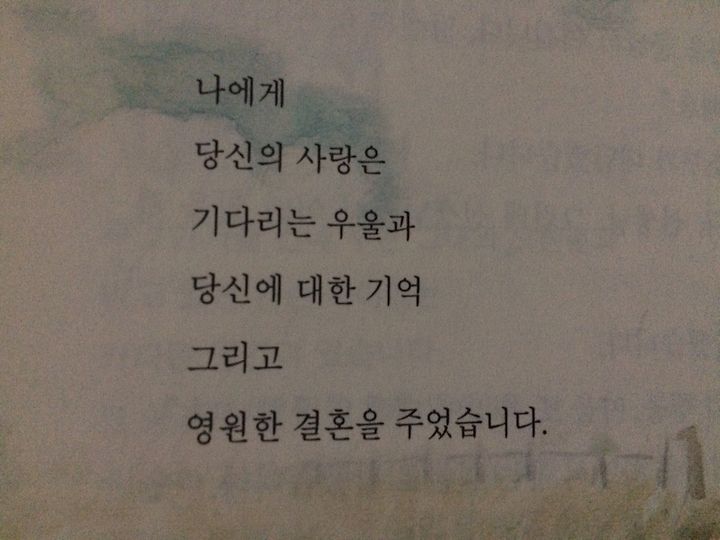 나에게
당신의 사랑은
기다리는 우울과
당신에 대한 기억
그리고
영원한 결혼을 주었습니다.